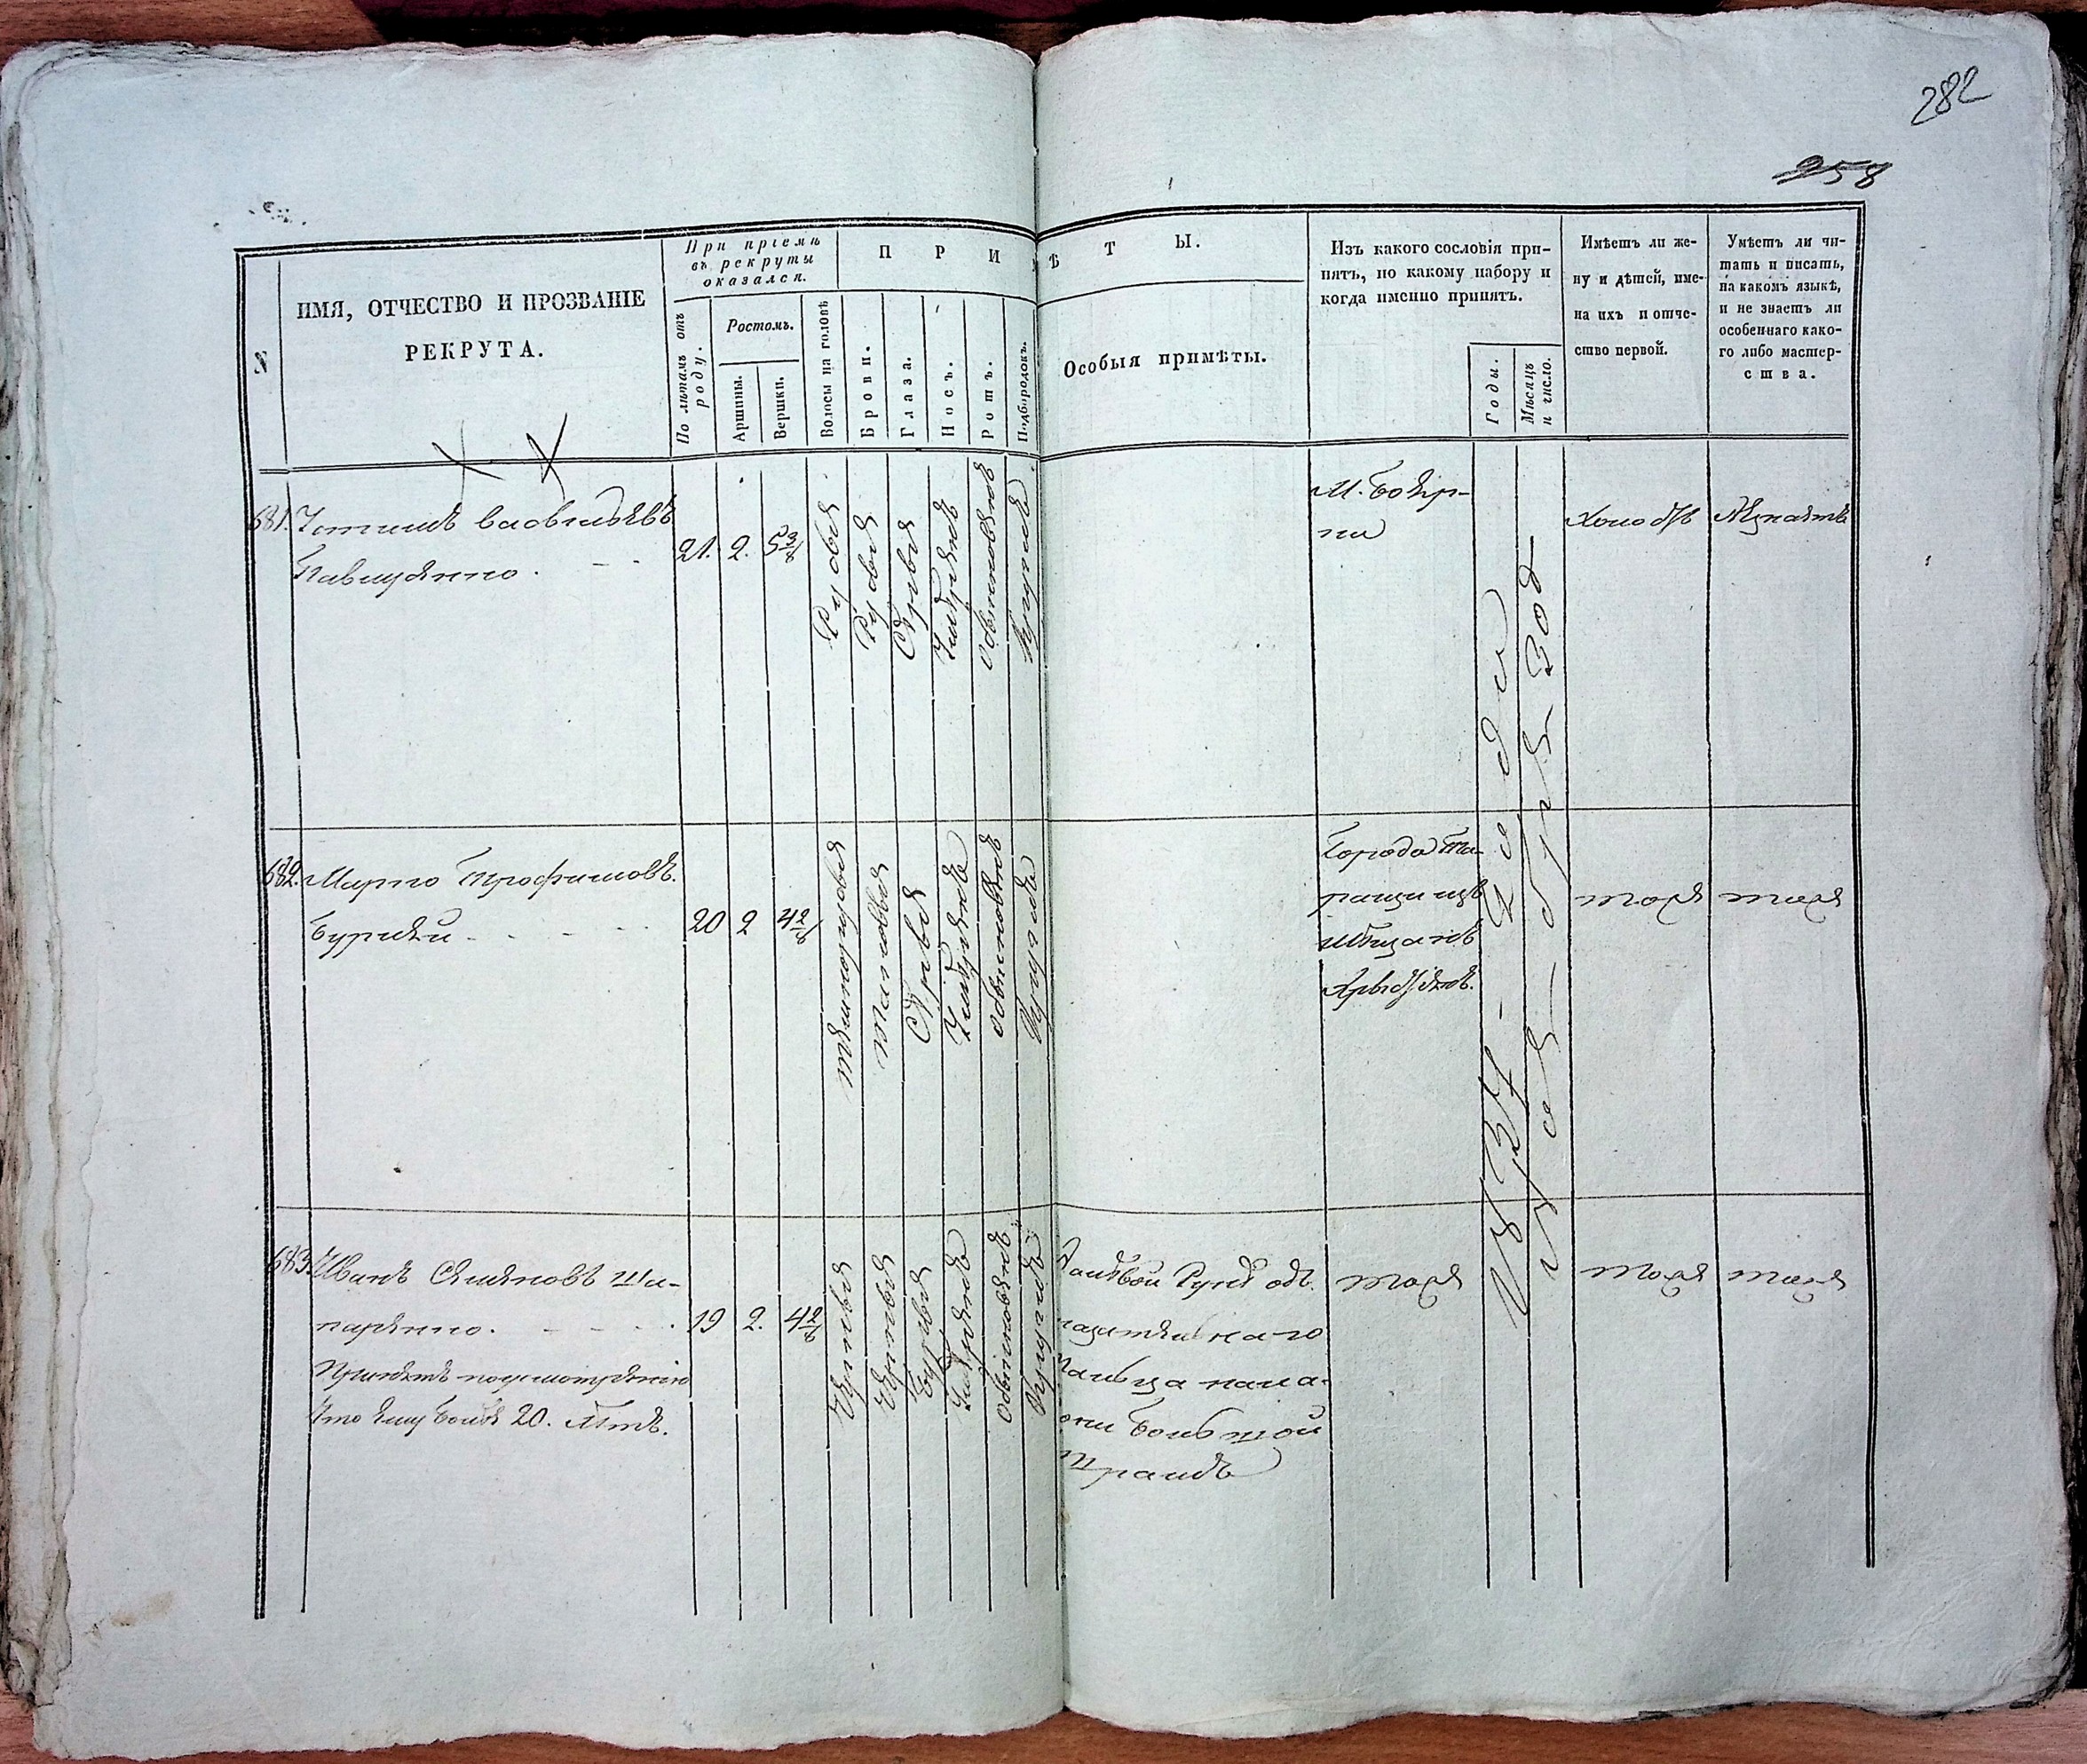 282
258
N
ИМЯ, ОТЧЕСТВО И ПРОЗВАНІЕ
РЕКРУТА.
При пріемѣ
въ рекруты
оказался.
По лѣтамъ отъ
роду.
Ростомъ.
Аршины.
Вершки.
ПРИМѢТЫ.
Волосы на головѣ
Брови.
Глаза.
Носъ.
Ротъ.
Подбородокъ.
Особыя примѣты.
Изъ какого сословія при-
нятъ, по какому набору и
когда именно принятъ.
Годы.
Мѣсяцъ
и число.
Имѣетъ ли же-
ну и дѣтей, име-
на ихъ и отче-
ство первой.
Умѣетъ ли чи-
тать и писать,
на какомъ языкѣ,
и не знаетъ ли
особеннаго како-
го либо мастер-
ства.
681.
Васильевъ
21.
2.
5 3/8
Русыя
Русыя
Сѣрыя
Умѣренъ
обыкновенъ
Круглъ
М. Бояр-
ка
1837 - года
Холостъ
Незнаетъ
682.
Марко Трофимовъ
20
2
4 2/8
темнорусыя
таковыя
Сѣрыя
Умѣренъ
обыкновенъ
Круглъ
Города Та-
ращи изъ
мѣщанъ
тоже
тоже
683.
Иванъ Семеновъ Ша-
паренко.
Принятъ по усмотренію
что ему более 20. лѣтъ.
19
2.
4 2/8
Черныя
Черныя
Умѣренъ
Обыкновенъ
Круглъ
На левой руке объ
указательнаго
пальца на ла-
дони большой
шрамъ
тоже
тоже
тоже